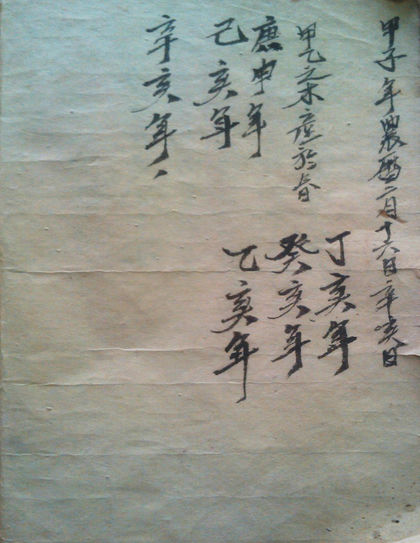 甲子年農曆二月十六日辛亥日
甲乙之木於春
庚申年
己亥年
辛亥年、
丁亥年
癸亥年
乙亥年